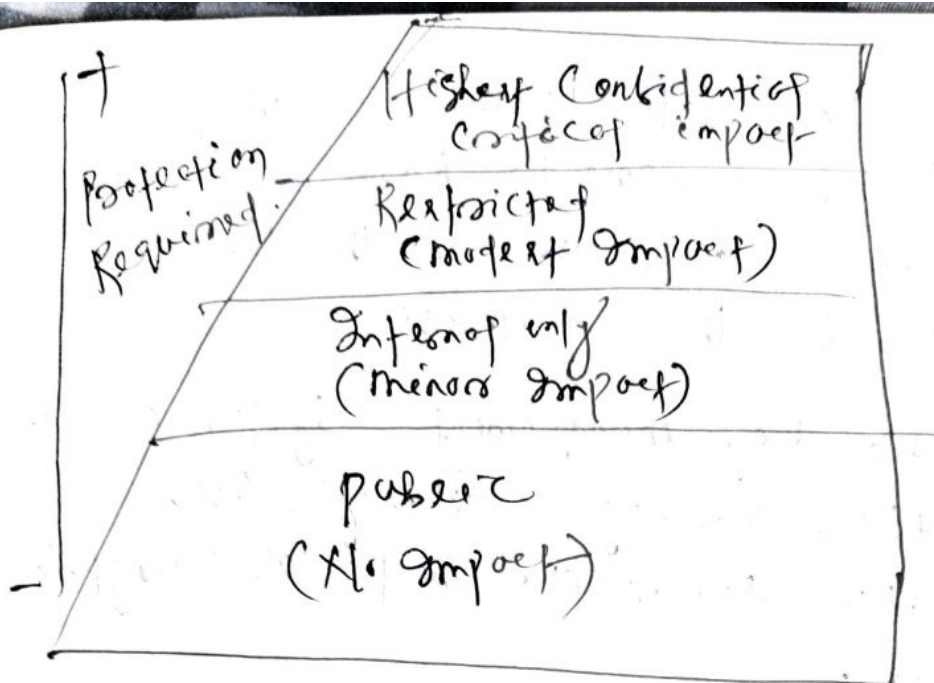 +
Protection
Required
-
Highest Confidential
Critical impact
Restricted
(modest Impact)
Internal only
(Minor Impact)
public
(No Impact)